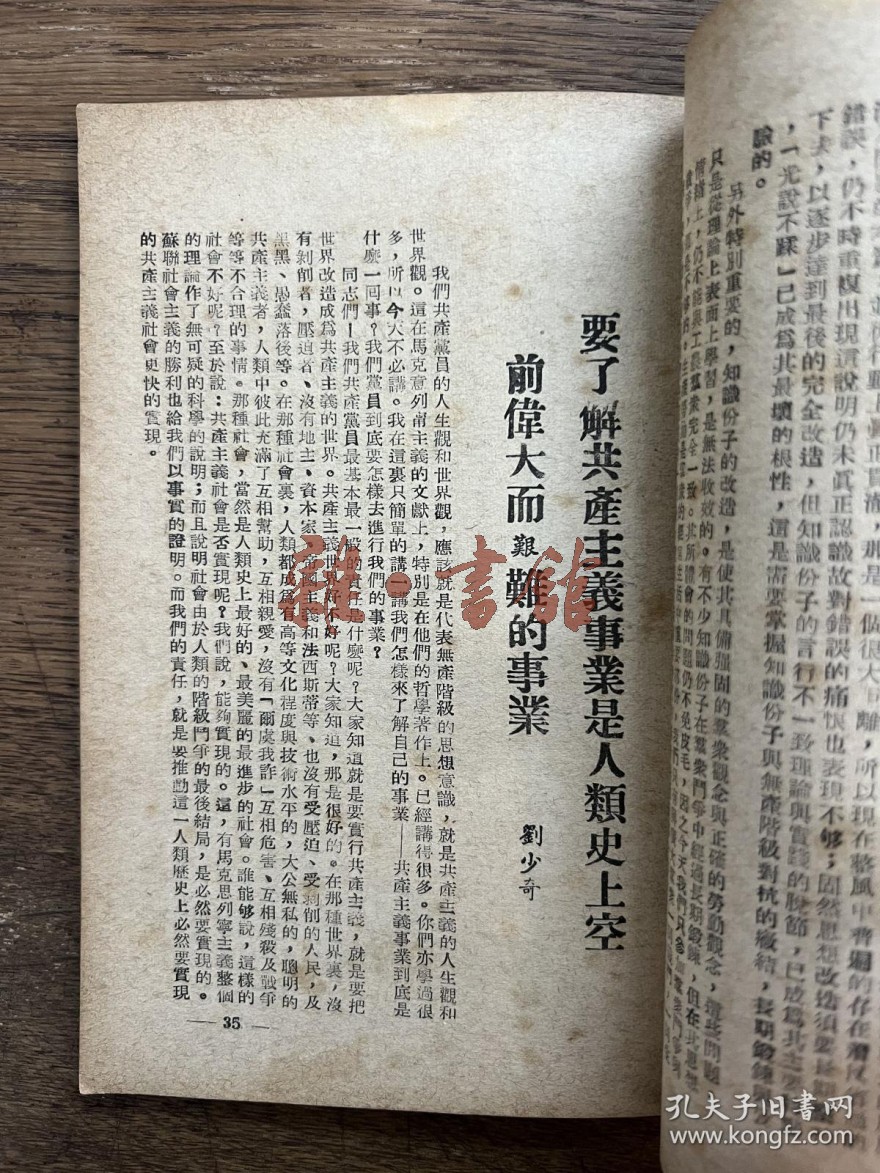 要了解共產主義事業是人類史上空
前偉大而艱難的事業
劉少奇
我們共產黨員的人生觀和世界觀,應該就是代表無產階級的思想意識,就是共產主義的人生觀和
世界觀。這在馬克意列甯主義的文獻上,特別是在他們的哲學著作上。已經講得很多。你們亦學過很
多,所以今天不必講。我在這裏只簡單的講一講我們怎樣來了解自己的事業——共產主義事業到底是
什麼一回事?我們黨員到底要怎樣去進行我們的事業?
同志們!我們共產黨員最基本最一般的責任是什麼呢?大家知道就是要實行共產主義,就是要把
世界改造成爲共產主義的世界。共產主義世界好不好呢?大家知道,那是很好的。在那種世界裏,沒
有剝削者,壓迫者、沒有地主、資本家、帝國主義和法西斯蒂等、也沒有受壓迫、受剝削的人民,及
黑黑、愚蠢落後等。在那種社會裏,人類都成爲有高等文化程度與技術水平的,大公無私的,聰明的
共產主義者,人類中彼此充滿了互相幫助,互相親愛,沒有「爾虞我詐」互相危害、互相殘殺及戰爭
等等不合理的事情。那種社會,當然是人類史上最好的、最美麗的最進步的社會。誰能够說,這樣的
社會不好呢?至於說:共產主義社會是否實現呢?我們說,能夠實現的。這,有馬克思列寧主義整個
的理論作了無可疑的科學的說明;而且說明社會由於人類的階級鬥爭的最後結局,是必然要實現的。
蘇聯社會主義的勝利也給我們以事實的證明。而我們的責任,就是要推動這一人類歷史上必然要實現
的共產主義社會更快的實現。
— 35 —
雜·書館
錯誤,仍不時重複出現這說明仍未眞正認識故對錯誤的痛恨也表現不够;固然思想改造須要
下夫,以逐步達到最後的完全改造,但知識份子的言行不一致理論與實踐的脫節,已成爲其主要
,「光說不蹂」已成爲其最壞的根性,這是需要掌握知識份子與無產階級對抗的癥結,長期鍛鍊
驗的。
另外特別重要的,知識份子的改造,是使其具備强固的羣衆觀念與正確的勞動觀念,這些問題
只是從理論上表面上學習,是無法收效的。有不少知識份子在羣衆鬥爭中經過長期鍛鍊,但在其思想
情緒上,仍不能與工農羣衆完全一致。其所體會的問題仍不免皮毛,因
孔夫子旧书网
www.kongfz.com